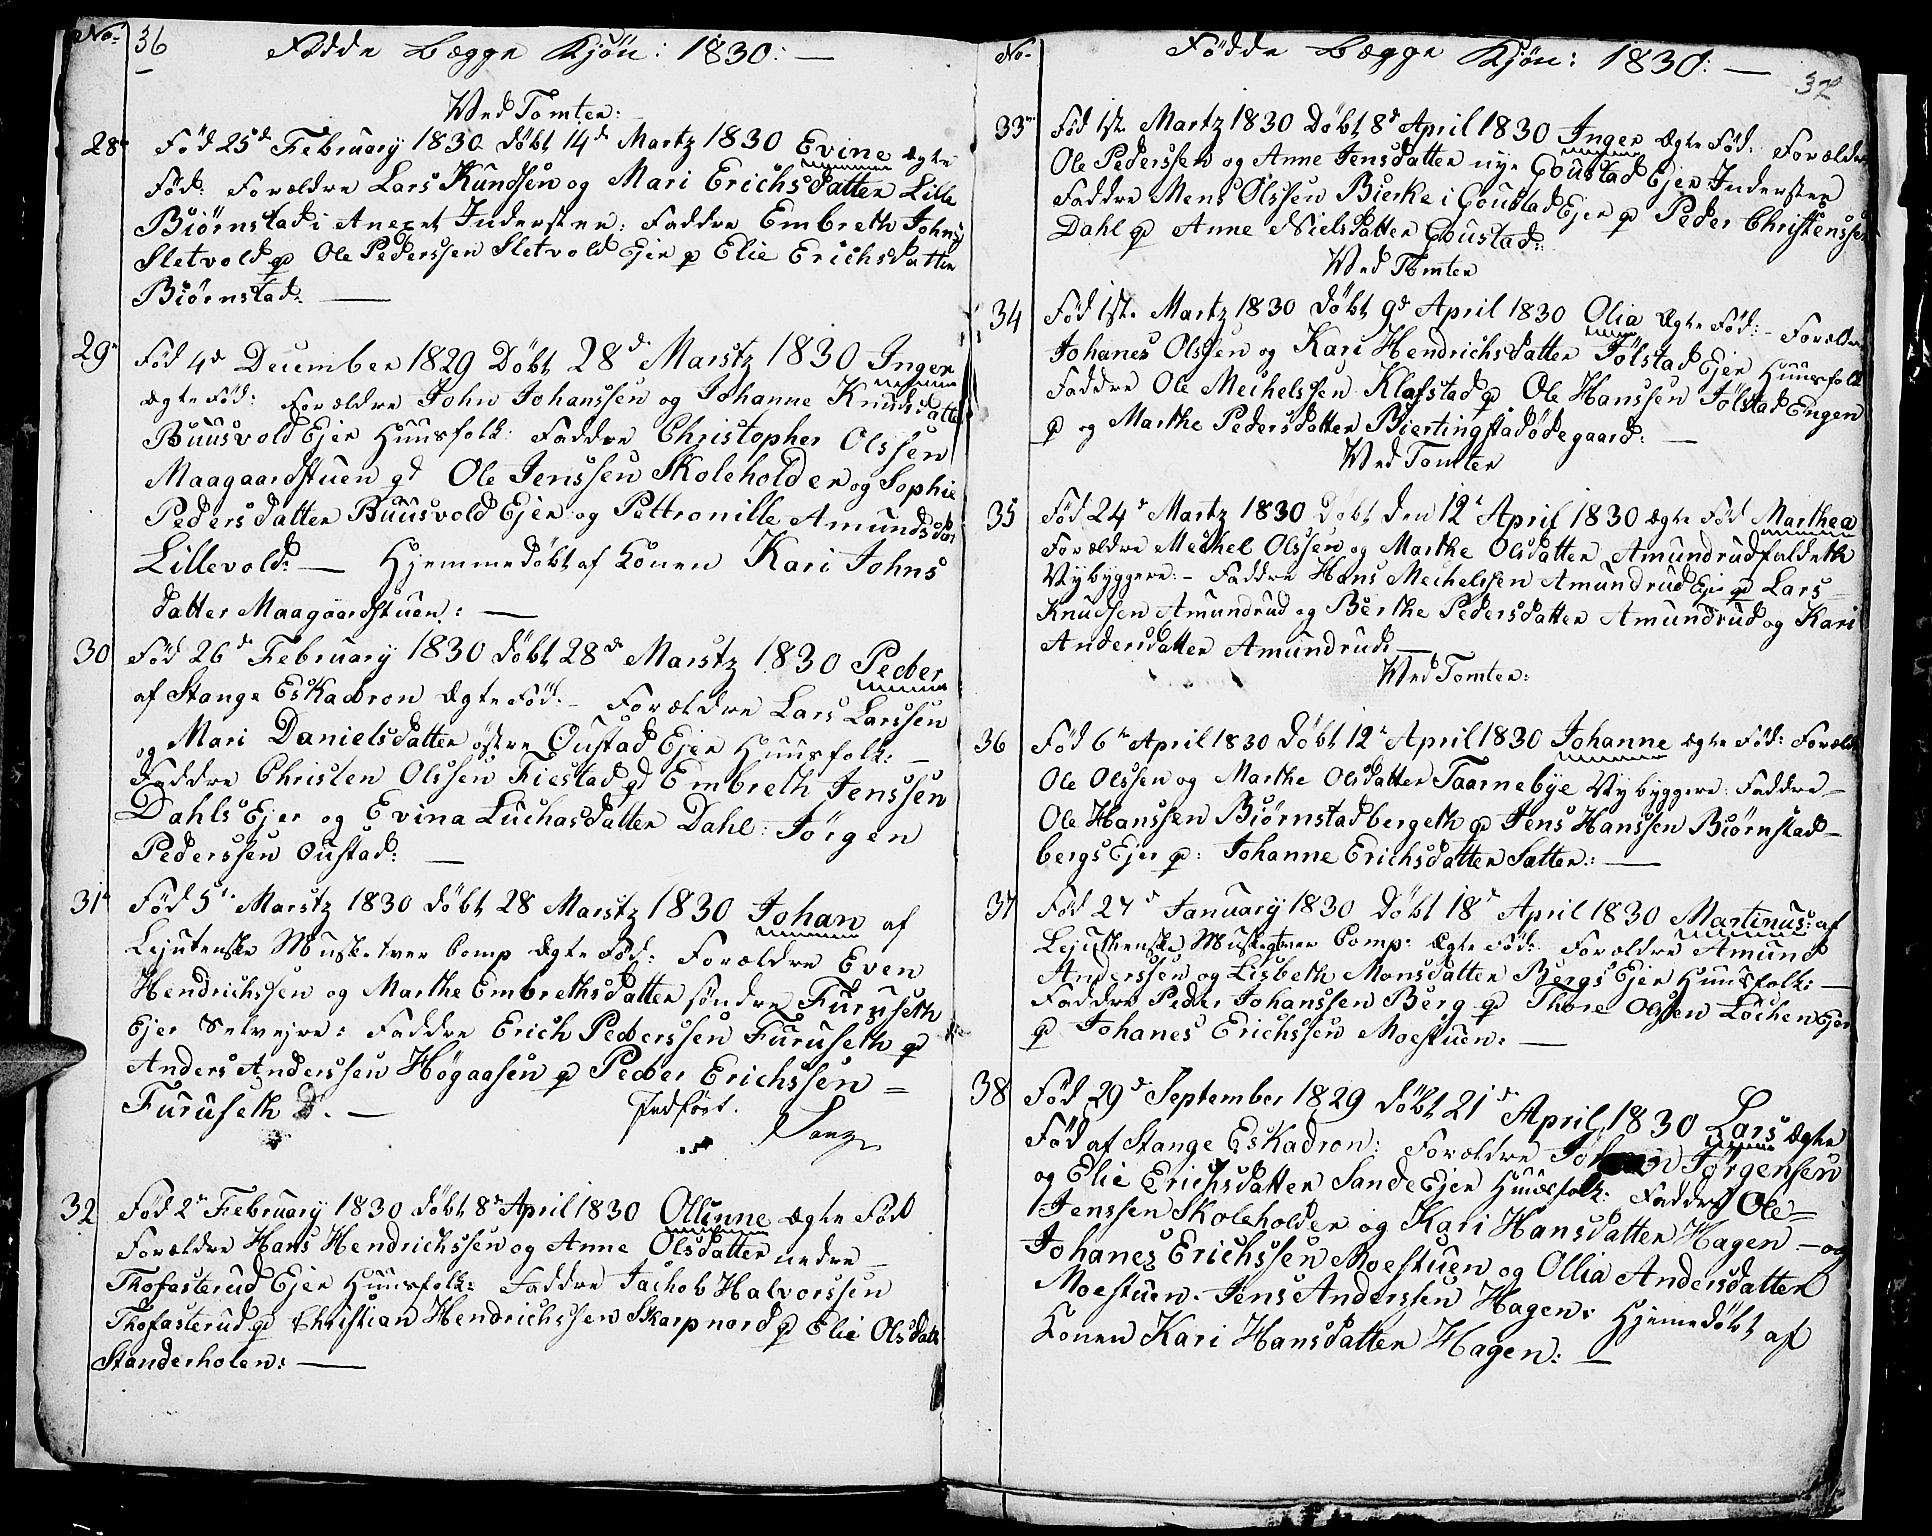 No. 36 Födde Begge Kjön: 1830: —
Wed Tomten:
28 Föd 25d February 1830 döbt 14d Martz 1830 Evine Ægte
Föd: Forældre Lars Kundsen og Mari Erichsdatter Lille
Biörnstad i Anexet Inderster: Faddre Embreth Johns
Sletvold Ole Pederssen Sletvold Ejer Elie Erichsdatter
Biörnstad: —
29 Föd 4d December 1829 Döbt 28d Marstz 1830 Inger
Ægte Föd: Forældre John Johanssen og Johanne Knudsdatter
Buusvold Ejer Huusfolk: Faddre Christopher Olssen
Maagaardstuen Ole Jenssen Skoleholder og Sophie
Pedersdatter Buusvold Ejer og Pettronille Amundsdatr
Lillevold: — Hjemmedöbt af Konen Kari Johns
datter Maagaardstuen: —
30 Föd 26d February 1830 döbt 28d Marstz 1830 Peder
af Stange Eskadron Ægte Föd: — Forældre Lars Larssen
og Mari Danielsdatter östre Oustad Ejer Huusfolk: —
Faddre Christen Olssen Fiestad Embreth Jenssen
Dahls Ejer og Evina Luchasdatter Dahl: Jörgen
Pederssen Oustad: —
31 Föd 5t Marstz 1830 döbt 28 Marstz 1830 Johan af
Lejutenske Musketeer Comp Ægte Föd: Forældre Even
Hendrichssen og Marthe Embrethsdatter söndre Furuseth
Ejer Selvejre: Faddre Erich Pederssen Furuseth
Anders Anderssen Högaasen Peder Erichssen =
Furuseth — Indfört.
32 Föd 2d February 1830 döbt 8d April 1830 Ollinne Ægte Föd
Forældre Hans Hendrichssen og Anne Olsdatter nedre —
Thofasterud Ejer Huusfolk: Faddre Jachob Halvorssen
Thofasterud Christian Hendrichssen Skarpnord Elie Olsdatt
Standerholen: —
No. Födde Begge Kjön: 1830: — 37
33 Föd 1st. Martz 1830 Döbt 8d April 1830 Inger Ægte Föd: Forældre
Ole Pederssen og Anne Jensdatter nye Goustad Ejer Inderster
Faddre Mens Olssen Bierke i Goustad Ejer Peder Christenssen
Dahl Anne Nielsdatter Goustad:
Wed Tomten
34 Föd 1st. Martz 1830 Döbt 9d April 1830 Olia Ægte Föd: — Forældre
Johanes Olssen og Kari Hendrichsdatter Jölstad Ejer Huusfolk
Faddre Ole Meichelssen Klafstad Ole Hanssen Jölstad Engen
og Marthe Pedersdatter Biertingstadödegaard: —
Wed Tomten
35 Föd 24d Martz 1830 Döbt den 12t April 1830 Ægte Föd Marthea
Forældre Mechel Olssen og Marthe Olsdatter Amundrudfaldeth
Nybyggere: — Faddre Hans Meichelssen Amundrud Ejer Lars
Knudsen Amundrud og Berthe Pedersdatter Amundrud og Kari
Andersdatter Amundrud: —
Wed Tomten:
36 Föd 6te April 1830 Döbt 12t April 1830 Johanne Ægte Föd: Foræld
Ole Olssen og Marthe Olsdatter Taarnebye Nybyggere: Faddre —
Ole Hanssen Biörnstadbergeth Jens Hanssen Biörnstad —
bergs Ejer: Johanne Erichsdatter Sætter: —
37 Föd 27d January 1830 Döbt 18d April 1830 Martinus: af
Lejuthenske Musketeer Comp: Ægte Föd: Forældre Amund
Anderssen og Lisbeth Monsdatter Bergs Ejer Huusfolk: —
Faddre Peder Johanssen Berg Thore Olssen Löchen Ejer
Johanes Erichssen Moestuen: —
38 Föd 29d September 1829 döbt 21d April 1830 Lars Ægte
Föd af Stange Eskadron: Forældre Jörgenssen
og Elie Erichsdatter Sande Ejer Huusfolk: Faddre Ole =
Jenssen Skoleholder og Kari Hansdatter Hagen — og
Johanes Erichssen Moestuen og Ollia Andersdatter
Moestuen. Jens Anderssen Hagen: Hjemedöbt af
Konen Kari Hansdatter Hagen: —